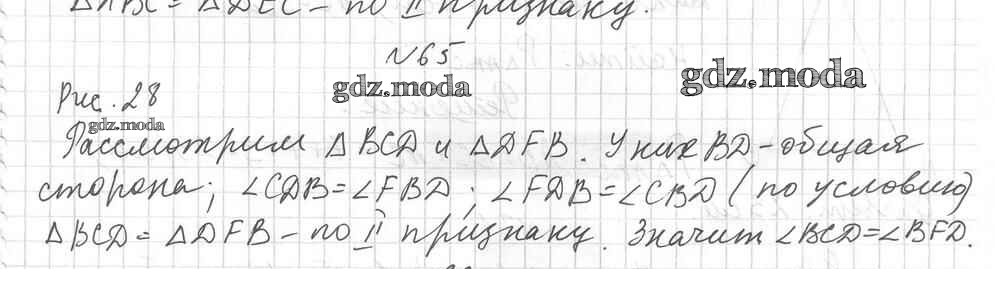 △ABC = △DEC – по II признаку.
№65
gdz.moda gdz.moda
Рис. 28
gdz.moda
Рассмотрим △BCD и △DFB. У них BD – общая
сторона; ∠CDB = ∠FBD; ∠FDB = ∠CBD (по условию)
△BCD = △DFB – по II признаку. Значит ∠BCD = ∠BFD.